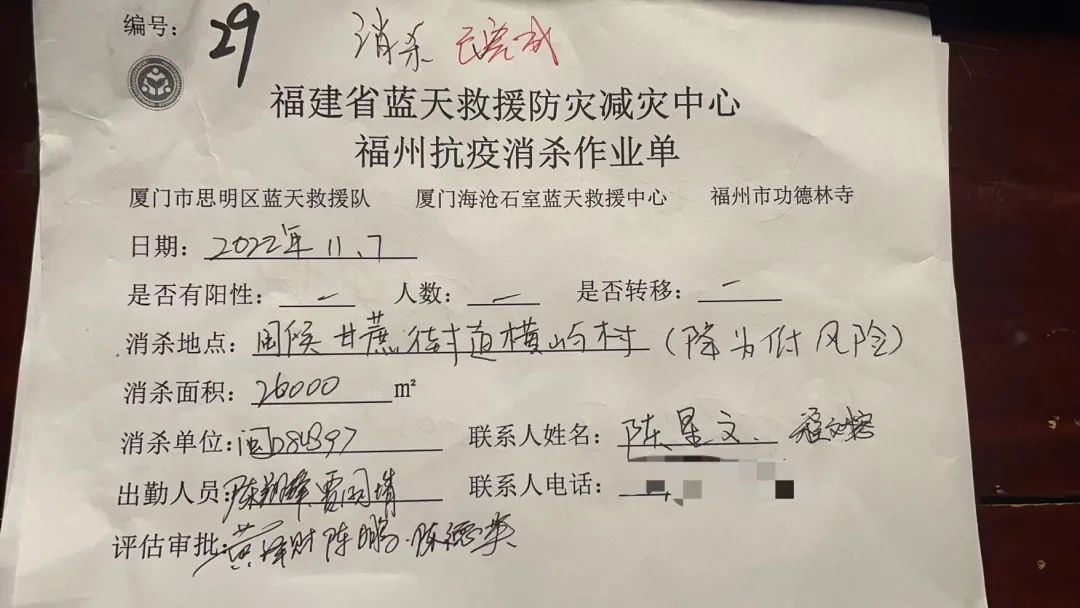 编号: 29 消杀 已完成
福建省蓝天救援防灾减灾中心
福州抗疫消杀作业单
厦门市思明区蓝天救援队 厦门海沧石室蓝天救援中心 福州市功德林寺
日期: 2022年11.7
是否有阳性: 一 人数: 一 是否转移: 一
消杀地点: 闽侯甘蔗街道横屿村(降为低风险)
消杀面积: 26000 m²
消杀单位: 联系人姓名: 陈星文.
出勤人员: 联系人电话:
评估审批: 陈鹏.陈德英